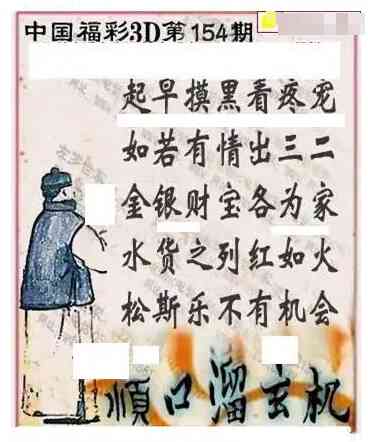 中国福彩3D第154期
起早摸黑看疼宠
如若有情出三二
金银财宝各为家
水货之列红如火
松斯乐不有机会
順口溜玄机